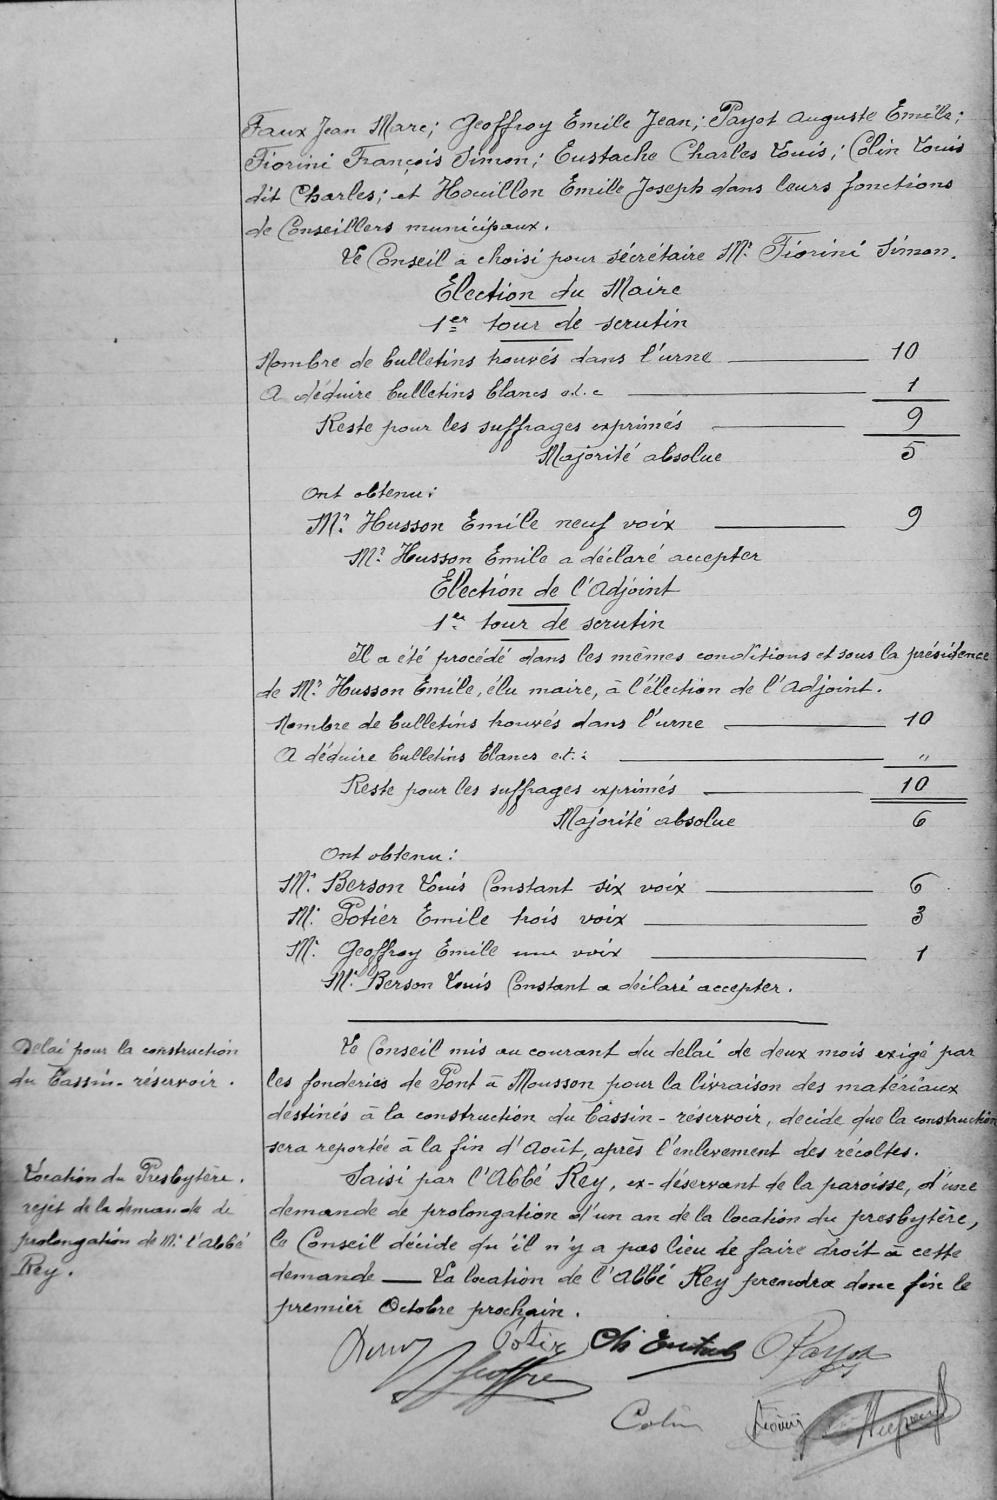 Faux Jean Marc; Geoffroy Emile Jean; Payot Auguste Emile;
Fiorini François Simon; Eustache Charles Louis; Colin Louis
dit Charles; et Houillon Emile Joseph dans leurs fonctions
de Conseillers municipaux.
Le Conseil a choisi pour sécrétaire Mr. Fiorini Simon.
Election du Maire
1er tour de scrutin
Nombre de bulletins trouvés dans l'urne — 10
A déduire bulletins blancs etc — 1
Reste pour les suffrages exprimés — 9
Majorité absolue 5
Ont obtenu:
Mr. Husson Emile neuf voix — 9
Mr. Husson Emile a déclaré accepter
Election de l'Adjoint
1er tour de scrutin
Il a été procédé dans les mêmes conditions et sous la présidence
de Mr. Husson Emile, élu maire, à l'élection de l'Adjoint.
Nombre de bulletins trouvés dans l'urne — 10
A déduire bulletins blancs etc: — "
Reste pour les suffrages exprimés — 10
Majorité absolue 6
Ont obtenu:
Mr. Berson Louis Constant six voix — 6
Mr. Potier Emile trois voix — 3
Mr. Geoffroy Emile une voix — 1
Mr. Berson Louis Constant a déclaré accepter.
Delai pour la construction
du bassin-réservoir.
Le Conseil mis au courant du delai de deux mois exigé par
les fonderies de Pont à Mousson pour la livraison des matériaux
destinés à la construction du bassin-réservoir, décide que la construction
sera reportée à la fin d'Août, après l'enlevement des récoltes.
Location du Presbytère.
rejet de la demande de
prolongation de Mr. l'abbé
Rey.
Saisi par l'Abbé Rey, ex-déservant de la paroisse, d'une
demande de prolongation d'un an de la location du presbytère,
le Conseil décide qu'il n'y a pas lieu de faire droit à cette
demande — La location de l'Abbé Rey prendra donc fin le
premier Octobre prochain.
Potier Ch Eustache Payot
Geoffroy
Colin Fiorini